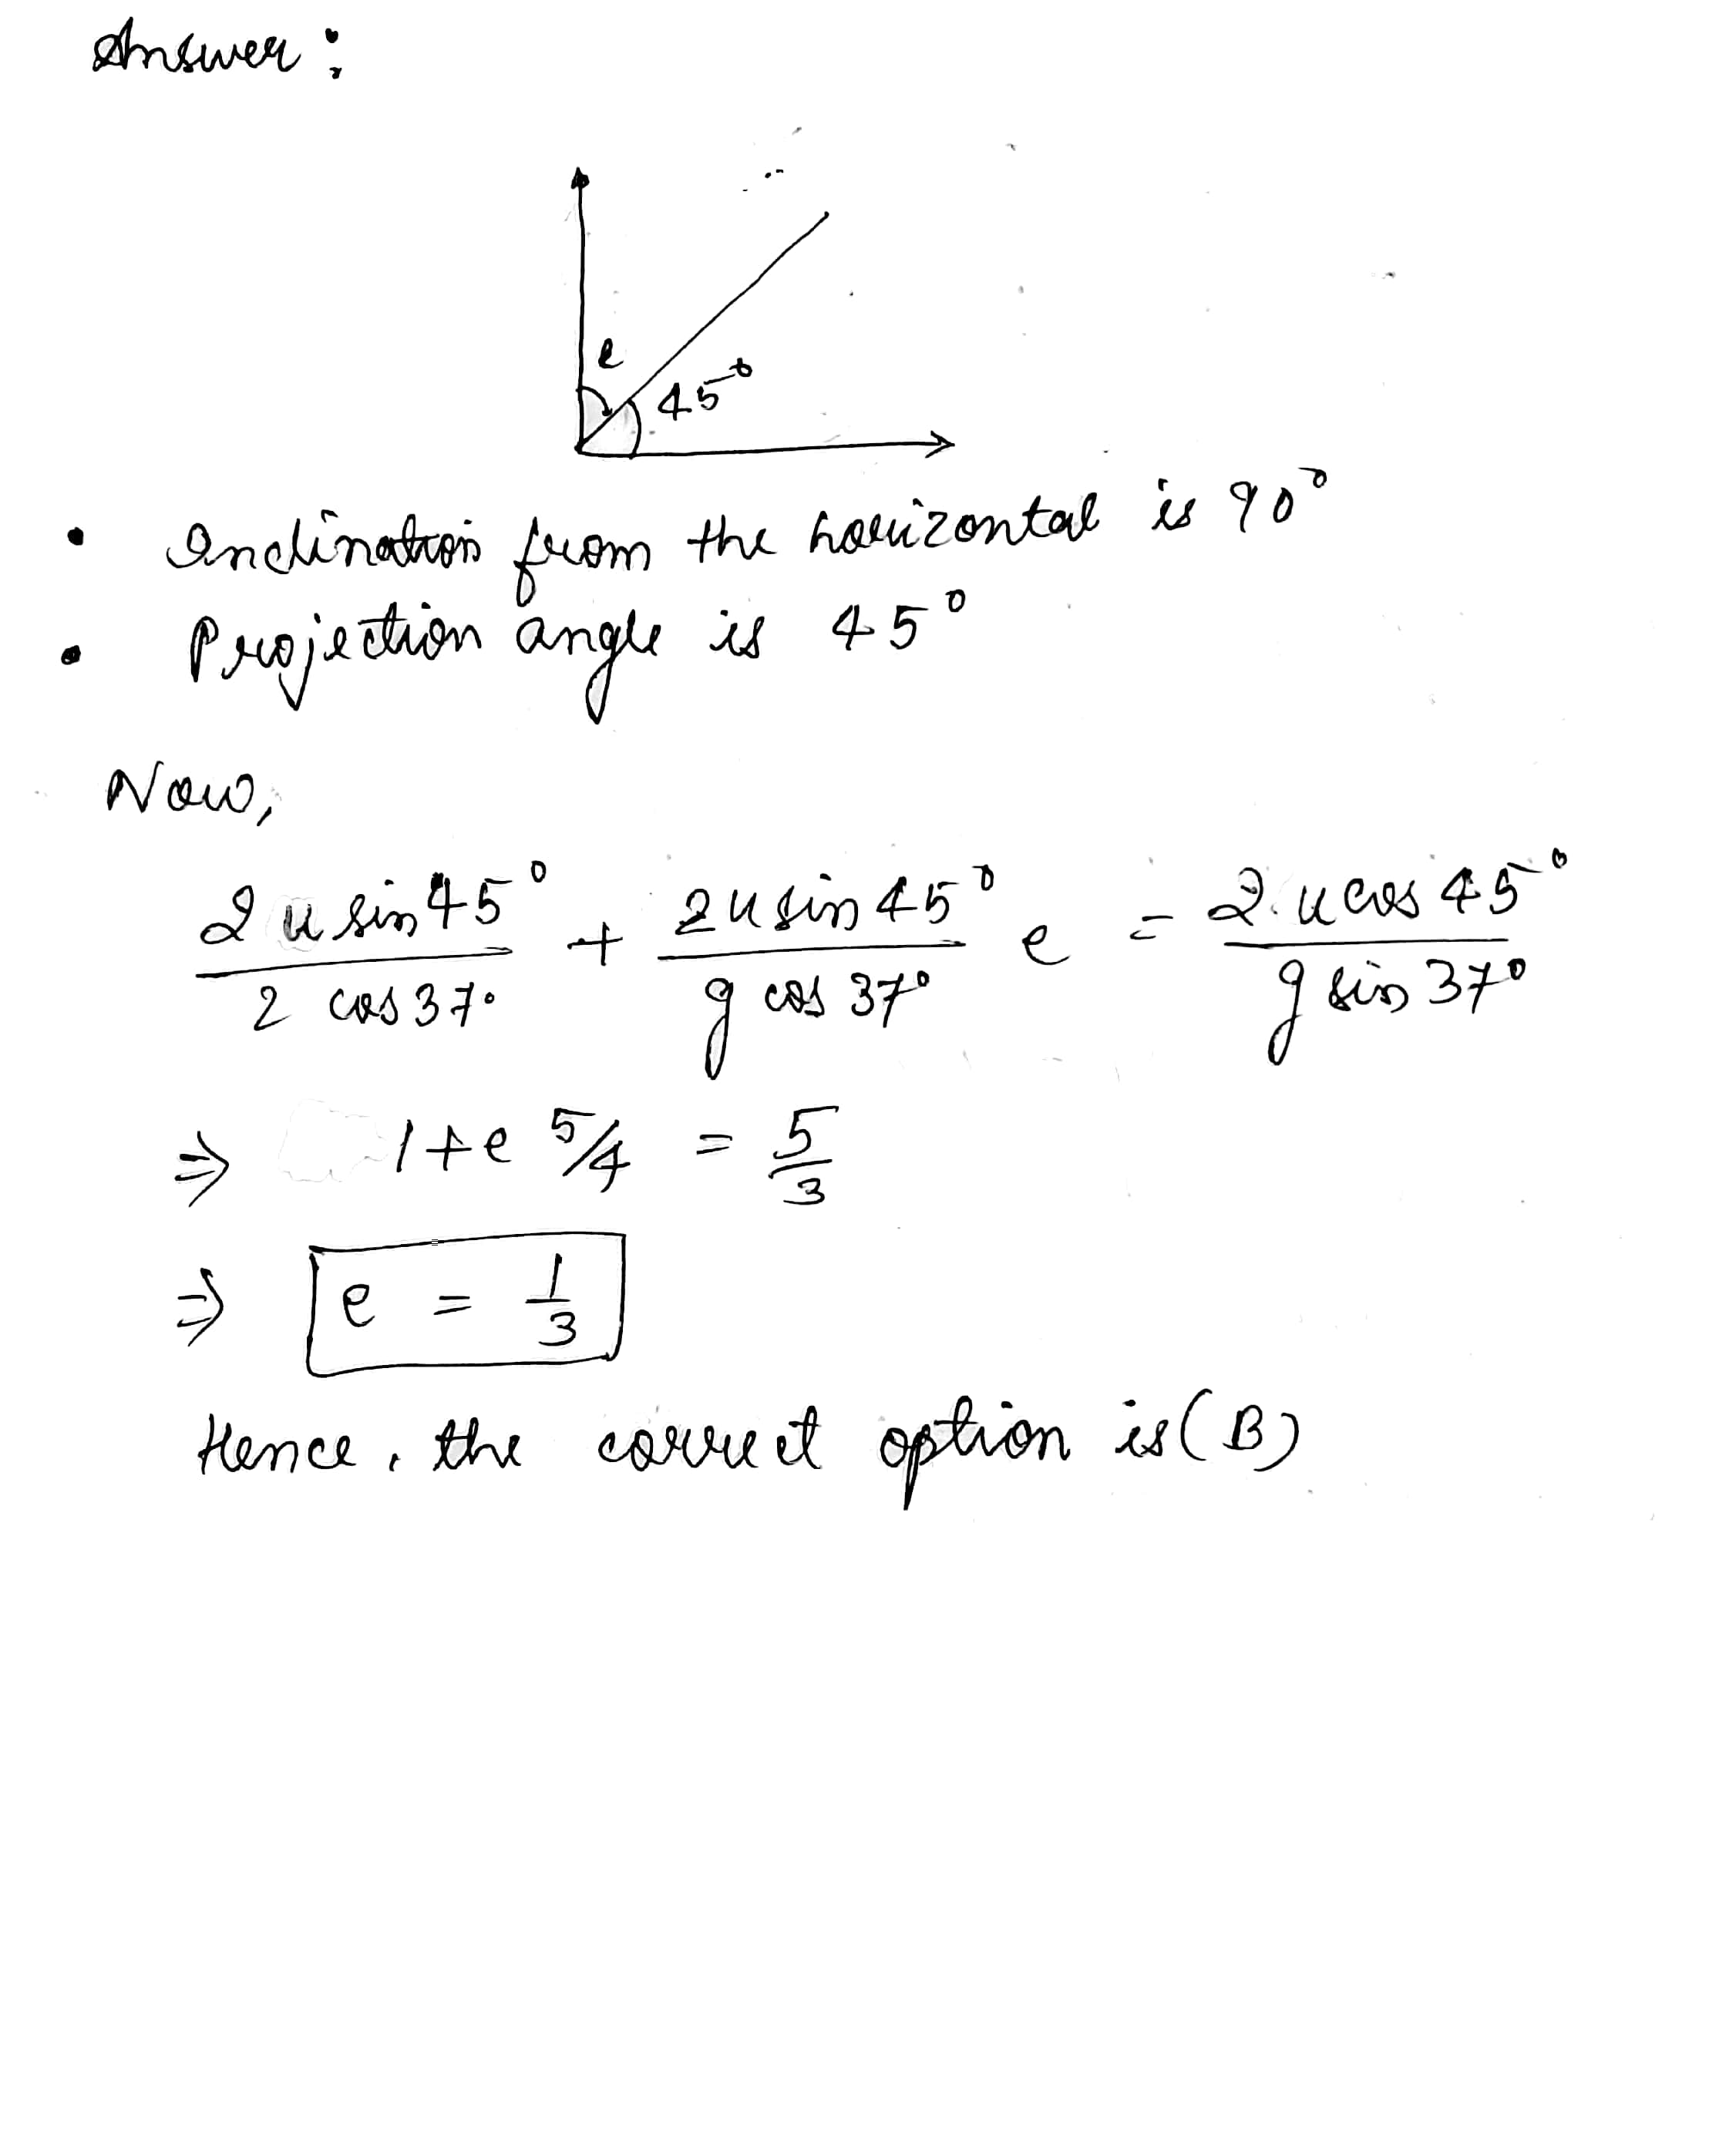 Answer :
e
45°
• Inclination from the horizontal is 90°
• Projection angle is 45°
Now,
2 u sin 45° / 2 cos 37° + 2 u sin 45° / g cos 37° e = 2 u cos 45° / g sin 37°
⇒ 1 + e 5/4 = 5/3
⇒ e = 1/3
Hence, the correct option is (B)